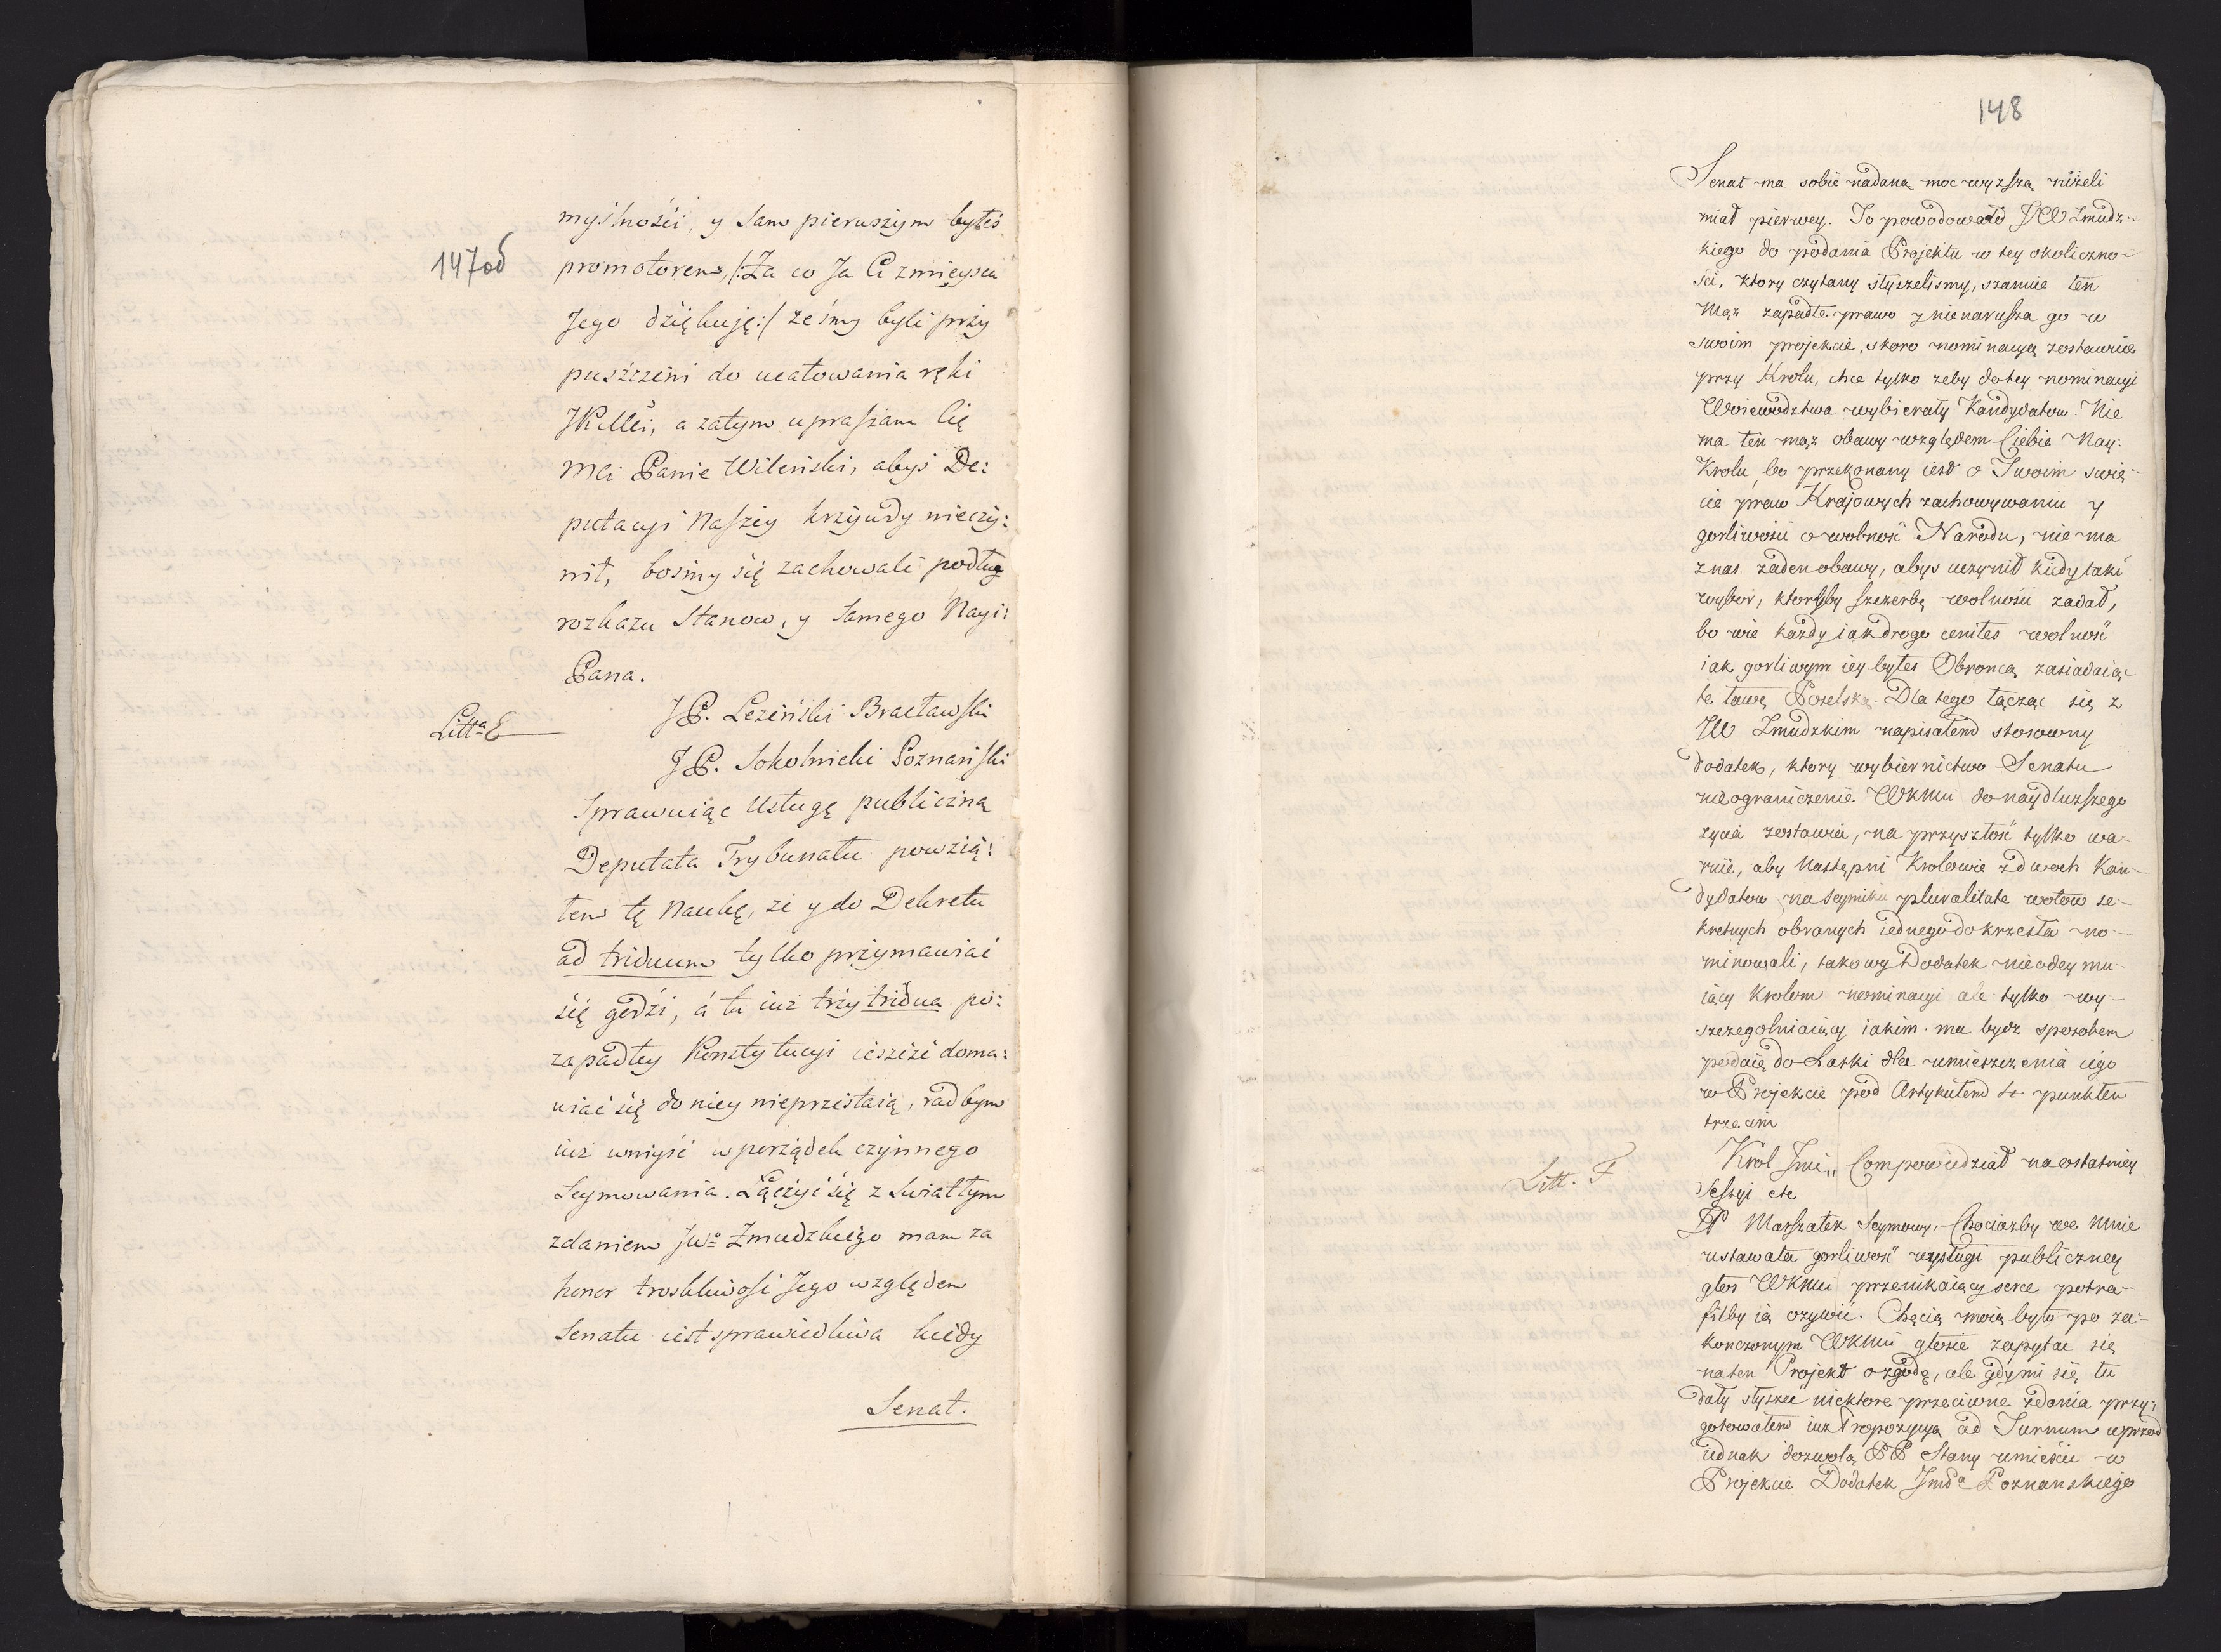 147od
myślności, y sam pierwszym byłeś
promotorem, /:Za co Ja Ci z mieysca
Jego dziękuję:/ ześmy byli przy
puszczeni do ucałowania ręki
JKMci, a zatym upraszam Cię
Mci Panie Wileński, abyś De:
putacyi Naszey krzywdy nieczy:
nił, bosmy się zachowali podług
rozkazu Stanow, y samego Nayi:
Pana.
Litta E
JP. Leziński Bracławski
JP. Sokolnicki Poznański
Sprawuiąc Usługę publiczną
Deputata Trybunału powzią:
łem tę Naukę, że y do Dekretu
ad triduum tylko przymawiać
się godzi, á tu iuż trzy tridua po:
zapadłey Konstytucyi ieszcze doma:
wiać się do niey nieprzestaią, rad bym
iuż wniyść w porządek czynnego
Seymowania. Łączyć się z Swiatłym
zdaniem JWo Zmudzkiego mam za
honor troskliwość Jego względem
Senatu iest sprawiedliwa kiedy
Senat.
148
Senat ma sobie nadaną moc wyzszą niżeli
miał pierwey. To powodowało JW Zmudz-
kiego do podania Projektu w tey okoliczno-
ści, ktory czytany słyszelismy, szanuie ten
Mąż zapadłe prawo y nienarusza go w
swoim projekcie, skoro nominacyą zostawuie
przy Krolu, chce tylko zeby do tey nominacyi
Woiewodztwa wybierały Kandydatow. Nie
ma ten mąż obawy względem Ciebie Nay:
Krolu, bo przekonany iest o Twoim swię-
cie praw Krajowych zachowywaniu y
gorliwości o wolność Narodu, nie ma
z nas żaden obawy, abys uczynił kiedy taki
wybor, ktoryby szczerbę wolności zadał,
bo wie każdy iak drogo cenites wolność
iak gorliwym iey byłes Obroncą zasiadaiąc
tę ławę Poselską. Dla tego łącząc się z
JW Zmudzkim napisałem stosowny
dodatek, ktory wybiernictwo Senatu
nieograniczenie WKMci do naydluzszego
zycia zostawia, na przyszłość tylko wa-
ruie, aby Następni Krolowie z dwoch Kan-
dydatow na Seymiku pluralitate wotow se-
kretnych obranych iednego do krzesła no-
minowali, takowy Dodatek nieodeymu-
iący Krolom nominacyi ale tylko wy-
szczegolniaiący iakim ma bydz sposobem
podaię do Laski dla umieszczenia iego
w Projekcie pod Artykułem 4 punktem
trzecim
Litt. F
Krol Jmć „ Com powiedział na ostatniey
Sessyi etc
JP Marszałek Seymowy, Chociażby we Mnie
ustawała gorliwość usługi publiczney
głos WKMci przenikaiący serce potra-
filby ią ozywić. Chęcią moią było po za-
konczonym WKMci głosie zapytać się
na ten Projekt o zgodę, ale gdy mi się tu
dały słyszeć niektore przeciwne zdania przy:
gotowałem iuż Propozycyą ad Turnum uprzod
iednak dozwolą PP Stany umieścić w
Projekcie Dodatek Jmć Poznanskiego